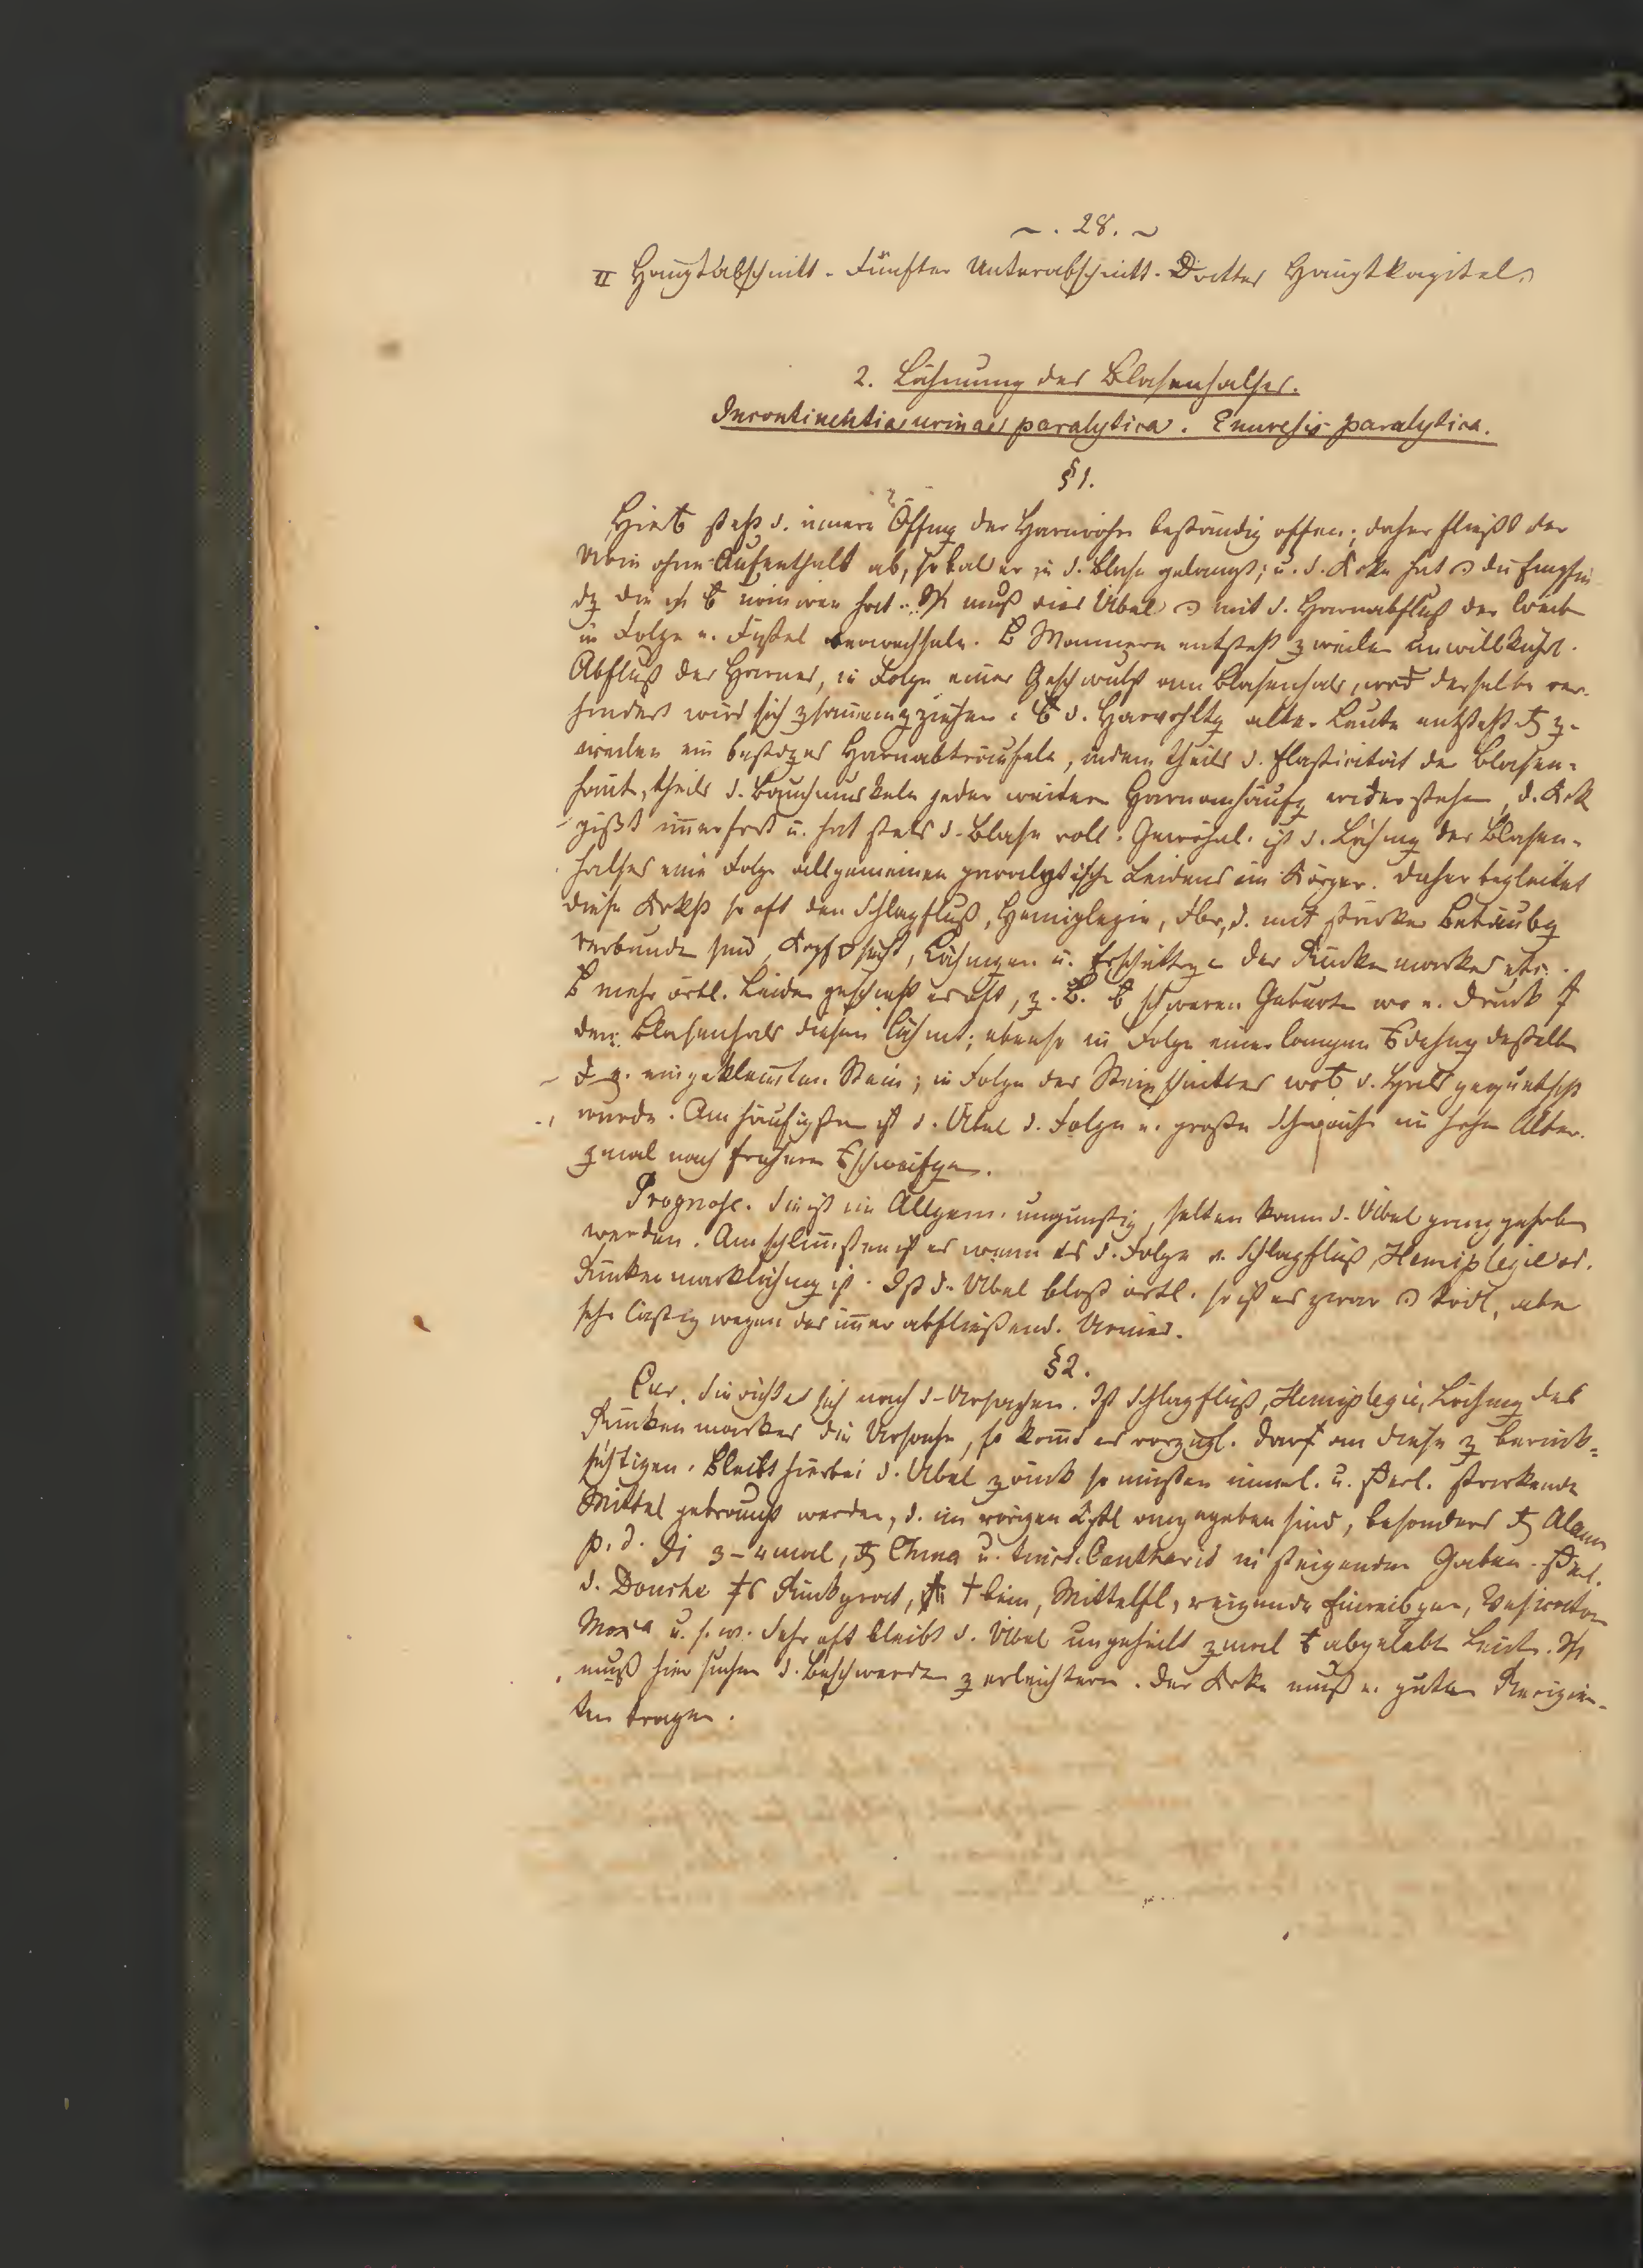 ~. 28. ~
II Hauptabschnitt. Fünfter Unterabschnitt. Drittes Hauptkapitel.
2. Lähmung des Blasenhalses.
Incontinentia urinae paralytica. Enuresis paralytica.
§1.
steht d. innere Öffng der Harnröhre beständig offen; daher fließt der
Urin ohne Aufenthalt ab, sobald er in d. Blase gelangt; u. d. Krke hat die Empfin
muß dies Übel mit d. Harnabfluß der
in Folge e. Fistel verwechseln. Männern entsteht zweilen unwillkührl.
Abfluß des Harnes, in Folge einer Geschwulst am Blasenhals, derselbe ver-
hindert wird sich zsammenzziehen. d. Harnvhltg alter Leute entsteht z-
weilen ein Harnabträufeln, indem theils d. Elasticität der Blasen-
haut, theils d. Bauchmuskeln jeder weitern Harnanhäufg widerstehen, d. Krke
pißt immerfort u. hat stets d. Blase voll. Gewöhnl. ist d. Lähmg des Blasen-
halses eine Folge allgemeinen paralytische Leidens im Körper. Daher begleitet
diese Krkht so oft den Schlagfluß, Hemiplegie, Fbr, d. mit starker Betäubg
verbunden sind, Lähmungen u. Erschüttrge des Rückenmarkes etc.
mehr örtl. Leiden geschieht es oft, z. B. schweren Geburten wo e. Druck
den Blasenhals diesen lähmt; ebenso in Folge einer langen dehng deßelben
eingeklemten Stein; in Folge des Steinschnittes d. gequetscht
wurde. Am häufigsten ist d. Übel d. Folge e. große Schwäche im hohen Alter.
zmal nach frühern schweifgen.
Prognose. Sie ist im Allgem. ungünstig, selten kann d. Übel ganz gehoben
werden. Am schlimsten ist es wenn es d. Folge v. Schlagfluß, Hemiplegie od.
Rückenmarklähmg ist. Ist d. Übel bloß örtl. so ist es zwar tödl, aber
sehr lästig wegen des immer abfließend. Urines.
§2.
Cur. Sie richtet sich nach d. Ursachen. Ist Schlagfluß, Hemiplegie, Lähmg des
Rückenmarkes die Ursache, so komt es vorzügl. darf an diese z berück-
sichtigen. Bleibt hierbei d. Übel zrück so müssen innerl. u. stärkende
Mittel gebraucht werden, d. im vorigen angegeben sind, besonders Alaun
p. d. 3-4mal, China u. tinct. Cantharid in steigenden Gaben.
d. Douche Rückgrat, Mittelfl, reizende Einreibgen, Vesicator
Moxa u. s. w. Sehr oft bleibt d. Übel ungeheilt zmal abgelebt Leute.
muß hier suchen d. Beschwerden z erleichtern. Der Krke muß e. guten Recipien-
ten tragen.